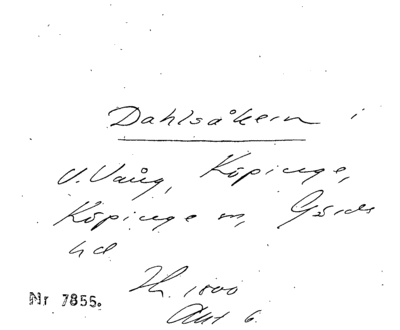 Dahlsåkern i
V. Vång, Köpinge,
Köpinge sn, Gärds
hd
Th. 1800
Akt 6.
Nr 7855.